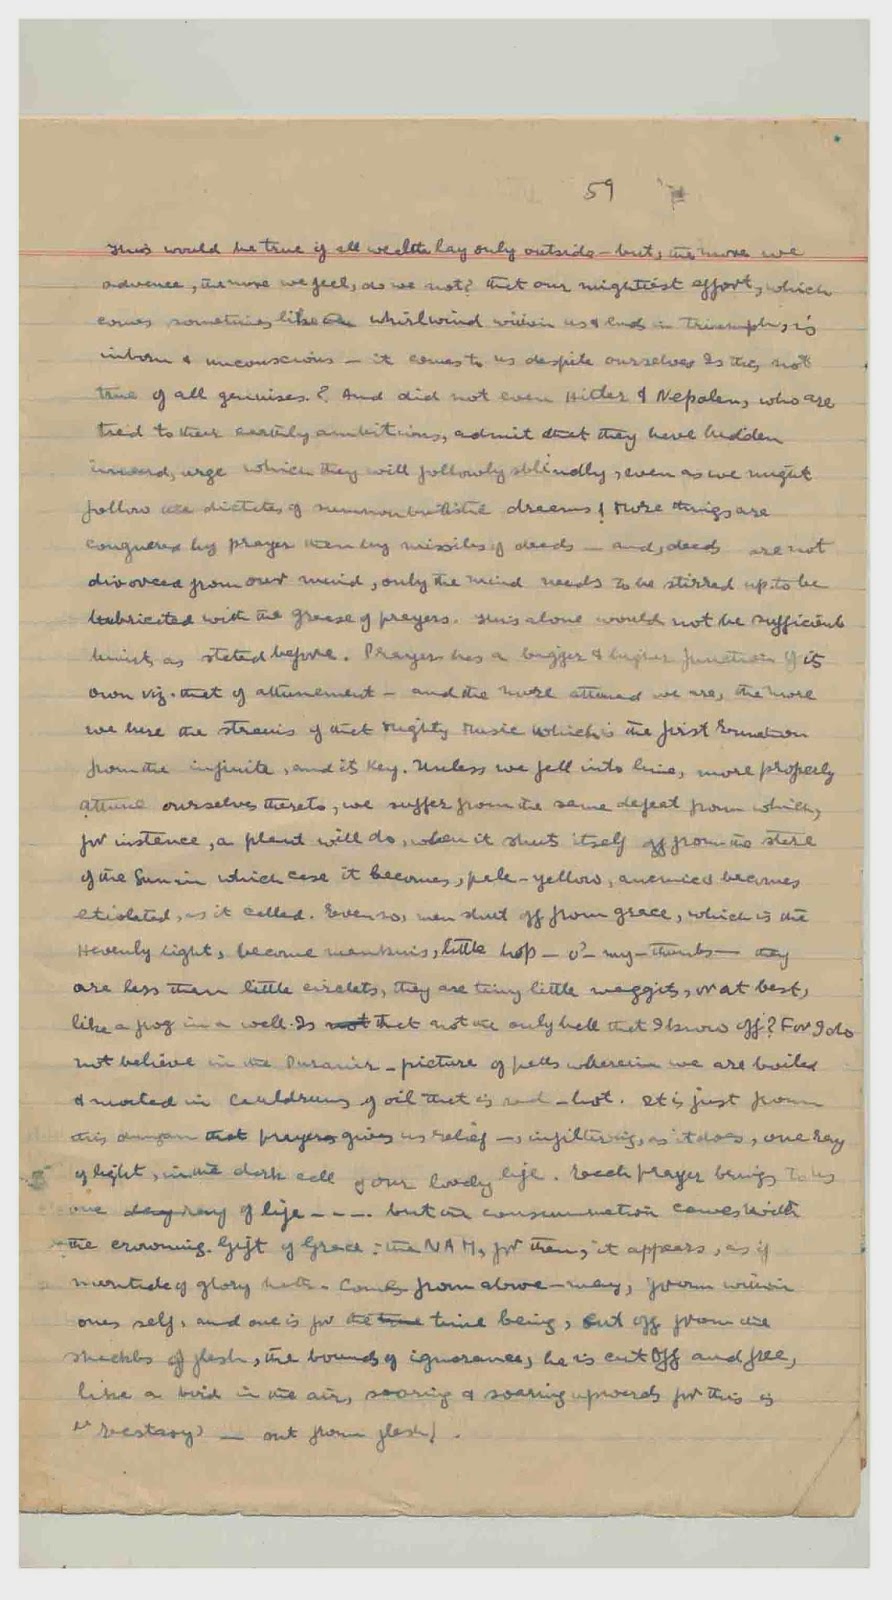 59
This would be true if all wealth lay only outside - but, the more we
advance, the more we feel, do we not? that our mightiest effort, which
comes sometimes like a whirlwind within us & ends in triumph, is
inborn & unconscious - it comes to us despite ourselves Is this not
true of all geniuses.? And did not even Hitler & Nepolen, who are
tied to their earthly ambitions, admit that they have hidden
inward, urge which they will follow blindly, even as we might
follow the dictates of dreams! More things are
conquered by prayer than by missiles of deeds - and, deeds are not
divorced from our mind, only the mind needs to be stirred up to be
lubricated with the grease of prayers. This alone would not be sufficient
as stated before. Prayers has a bigger & higher function of its
own viz. that of attunement - and the more attuned we are, the more
we hear the strains of that Mighty Music which is the first Emanation
from the infinite, and its Key. Unless we fell into line, more properly
attune ourselves thereto, we suffer from the same defeat from which,
for instance, a plant will do, when it shuts itself off from the
of the Sun in which case it becomes, pale-yellow, becomes
etiolated, as it called. Even so, men shut off from grace, which is the
Hevenly light, become manikins, little hop - o' - my - thumbs - they
are less than little circlets, they are tiny little maggits, or at best,
like a frog in a well. Is that not the only hell that I know off? For I do
not believe in the Puranic - picture of wherein we are boiled
& in Cauldrons of oil that is red - hot. It is just from
this that prayers gives us relief -, infiltering, as it does, one Ray
of light, in the dark cell of our lovely life. Each prayer brings to us
one ray of life - - - . but the consummation comes with
the crowning. Gift of Grace : the NAM, for then, it appears, as if
of glory hath - Comes from above - nay, from within
ones self, and one is for the time being, cut off from the
shackles of flesh, the bounds of ignorance, he is cut off and free,
like a bird in the air, soaring & soaring upwards for this is
"Ecstacy" - out from flesh! .